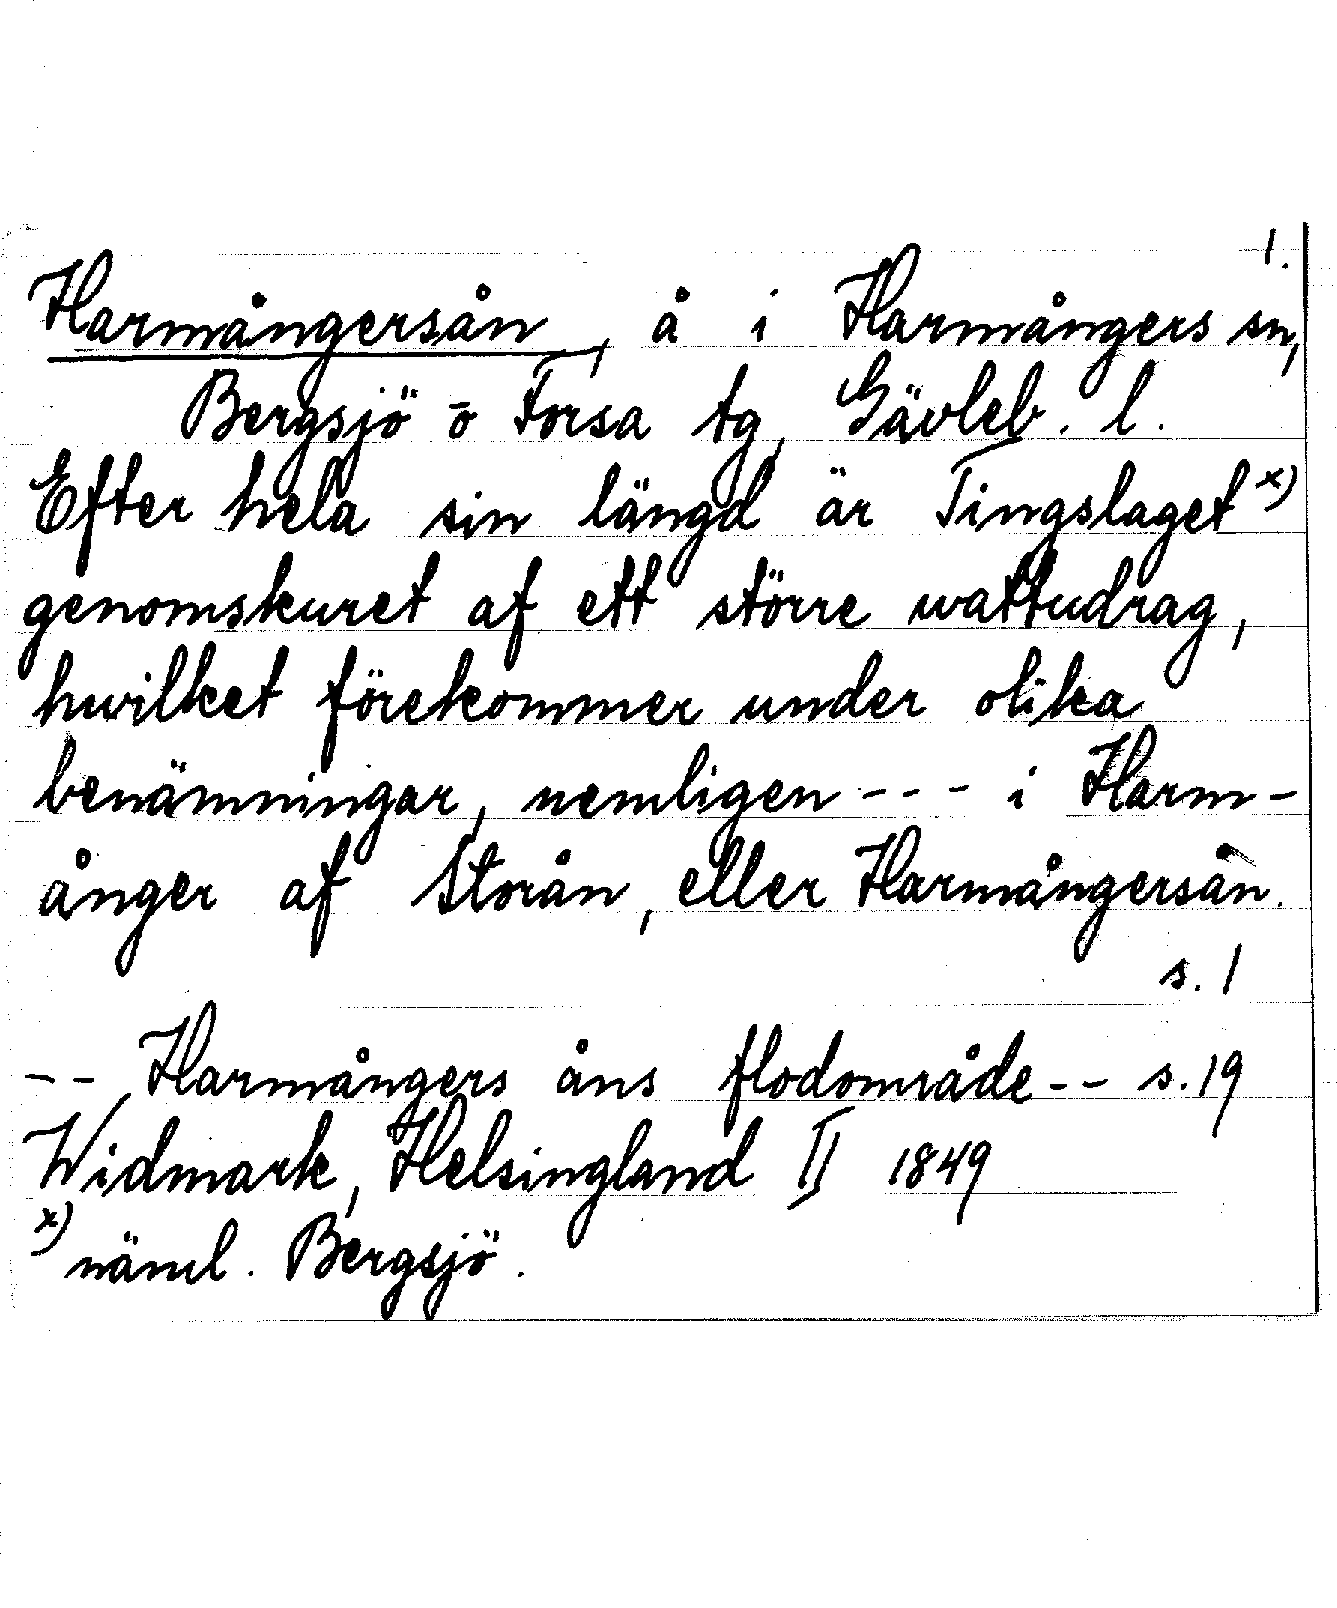 1.
Harmångersån, å i Harmångers sn,
Bergsjö o Forsa tg, Gävleb. l.
Efter hela sin längd är Tingslaget x)
genomskuret af ett större wattudrag,
hwilket förekommer under olika
benämningar, nemligen --- i Harm-
ånger af Storån, eller Harmångersån.
s. 1
-- Harmångers åns flodområde -- s. 19
Widmark, Helsingland II 1849
x) näml. Bergsjö.